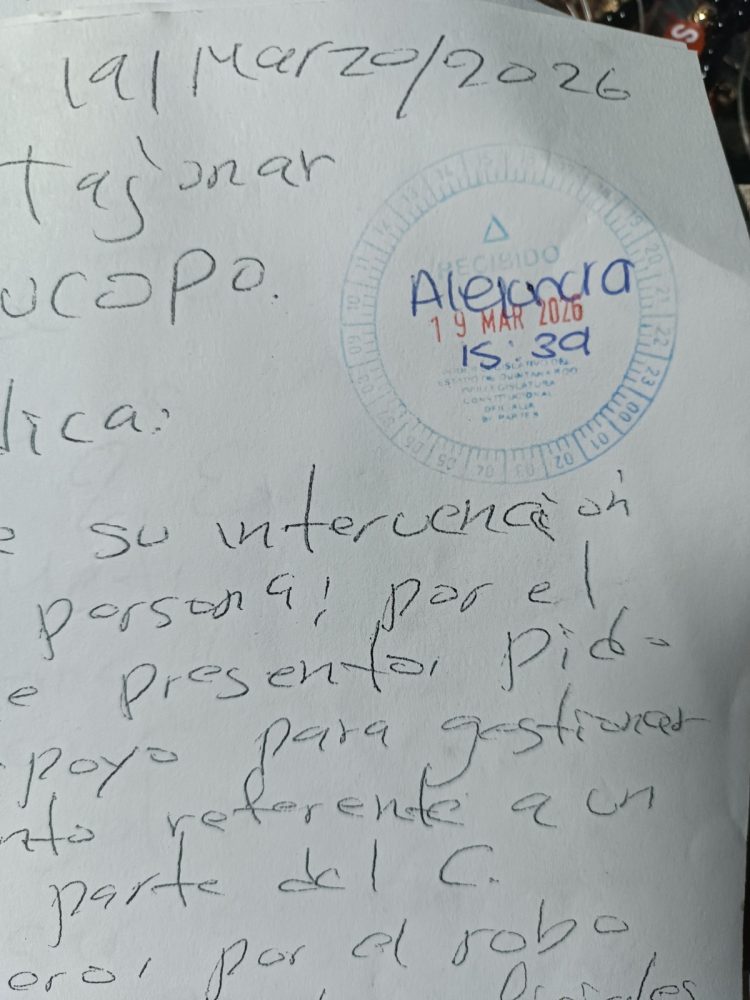 19/Marzo/2026
RECIBIDO
Alejandra
19 MAR 2026
15:39
ESTADO DE QUINTANA ROO
CONSTITUCIONAL
OFICIALIA
DE PARTES
ucopo.
lica:
e su intervención
persona, por el
e presento, pido
poyo para gestionar
nto referente a un
parte del C.
ero, por el robo